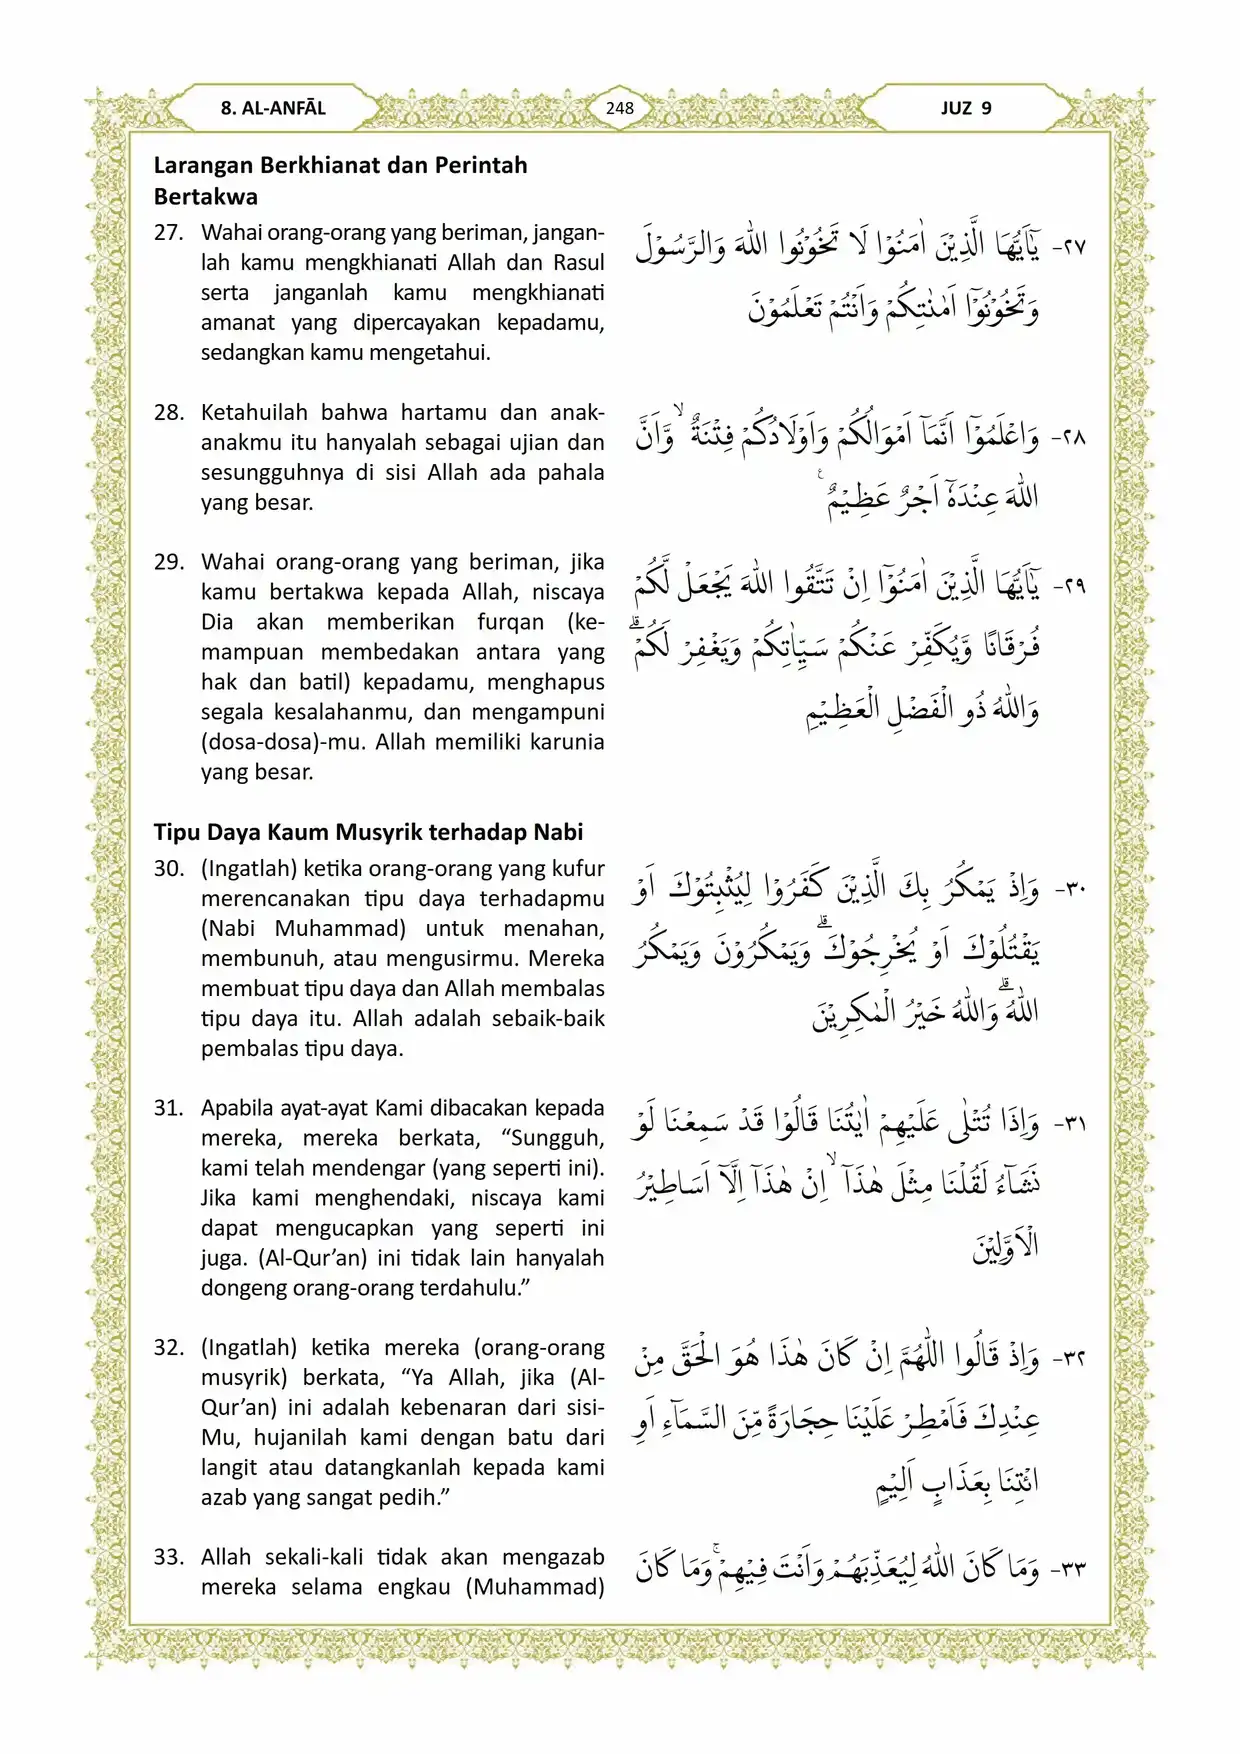 8. AL-ANFĀL
248
JUZ 9
Larangan Berkhianat dan Perintah
Bertakwa
27. Wahai orang-orang yang beriman, jangan-
lah kamu mengkhianati Allah dan Rasul
serta janganlah kamu mengkhianati
amanat yang dipercayakan kepadamu,
sedangkan kamu mengetahui.
٢٧- يٰٓاَيُّهَا الَّذِيْنَ اٰمَنُوْا لَا تَخُوْنُوا اللّٰهَ وَالرَّسُوْلَ
وَتَخُوْنُوْٓا اَمٰنٰتِكُمْ وَاَنْتُمْ تَعْلَمُوْنَ
28. Ketahuilah bahwa hartamu dan anak-
anakmu itu hanyalah sebagai ujian dan
sesungguhnya di sisi Allah ada pahala
yang besar.
٢٨- وَاعْلَمُوْٓا اَنَّمَآ اَمْوَالُكُمْ وَاَوْلَادُكُمْ فِتْنَةٌ ۙ وَّاَنَّ
اللّٰهَ عِنْدَهٗٓ اَجْرٌ عَظِيْمٌ ࣖ
29. Wahai orang-orang yang beriman, jika
kamu bertakwa kepada Allah, niscaya
Dia akan memberikan furqan (ke-
mampuan membedakan antara yang
hak dan batil) kepadamu, menghapus
segala kesalahanmu, dan mengampuni
(dosa-dosa)-mu. Allah memiliki karunia
yang besar.
٢٩- يٰٓاَيُّهَا الَّذِيْنَ اٰمَنُوْٓا اِنْ تَتَّقُوا اللّٰهَ يَجْعَلْ لَّكُمْ
فُرْقَانًا وَّيُكَفِّرْ عَنْكُمْ سَيِّاٰتِكُمْ وَيَغْفِرْ لَكُمْۗ
وَاللّٰهُ ذُو الْفَضْلِ الْعَظِيْمِ
Tipu Daya Kaum Musyrik terhadap Nabi
30. (Ingatlah) ketika orang-orang yang kufur
merencanakan tipu daya terhadapmu
(Nabi Muhammad) untuk menahan,
membunuh, atau mengusirmu. Mereka
membuat tipu daya dan Allah membalas
tipu daya itu. Allah adalah sebaik-baik
pembalas tipu daya.
٣٠- وَاِذْ يَمْكُرُ بِكَ الَّذِيْنَ كَفَرُوْا لِيُثْبِتُوْكَ اَوْ
يَقْتُلُوْكَ اَوْ يُخْرِجُوْكَۗ وَيَمْكُرُوْنَ وَيَمْكُرُ
اللّٰهُ ۗوَاللّٰهُ خَيْرُ الْمٰكِرِيْنَ
31. Apabila ayat-ayat Kami dibacakan kepada
mereka, mereka berkata, “Sungguh,
kami telah mendengar (yang seperti ini).
Jika kami menghendaki, niscaya kami
dapat mengucapkan yang seperti ini
juga. (Al-Qur’an) ini tidak lain hanyalah
dongeng orang-orang terdahulu.”
٣١- وَاِذَا تُتْلٰى عَلَيْهِمْ اٰيٰتُنَا قَالُوْا قَدْ سَمِعْنَا لَوْ
نَشَاۤءُ لَقُلْنَا مِثْلَ هٰذَآ ۙ اِنْ هٰذَآ اِلَّآ اَسَاطِيْرُ
الْاَوَّلِيْنَ
32. (Ingatlah) ketika mereka (orang-orang
musyrik) berkata, “Ya Allah, jika (Al-
Qur’an) ini adalah kebenaran dari sisi-
Mu, hujanilah kami dengan batu dari
langit atau datangkanlah kepada kami
azab yang sangat pedih.”
٣٢- وَاِذْ قَالُوا اللّٰهُمَّ اِنْ كَانَ هٰذَا هُوَ الْحَقَّ مِنْ
عِنْدِكَ فَاَمْطِرْ عَلَيْنَا حِجَارَةً مِّنَ السَّمَاۤءِ اَوِ
ائْتِنَا بِعَذَابٍ اَلِيْمٍ
33. Allah sekali-kali tidak akan mengazab
mereka selama engkau (Muhammad)
٣٣- وَمَا كَانَ اللّٰهُ لِيُعَذِّبَهُمْ وَاَنْتَ فِيْهِمْۚ وَمَا كَانَ